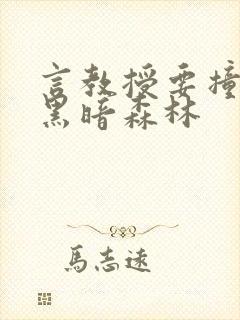 言教授要撞
黑暗森林
馬志遠